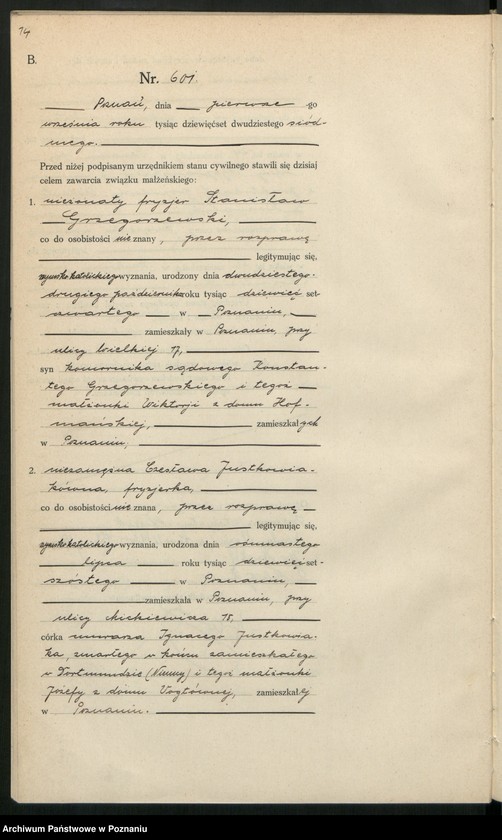 14
B.
Nr. 601.
Poznań, dnia pierwszego
września roku tysiąc dziewięćset dwudziestego siód-
mego.
Przed niżej podpisanym urzędnikiem stanu cywilnego stawili się dzisiaj
celem zawarcia związku małżeńskiego:
1. nieżonaty fryzjer Stanisław
Grzegorzewski,
co do osobistości nie znany, przez rozprawę
legitymując się,
rzymsko katolickiego wyznania, urodzony dnia dwudziestego-
drugiego października roku tysiąc dziewięć set-
czwartego w Poznaniu,
zamieszkały w Poznaniu, przy
ulicy Wielkiej 17,
syn komornika sądowego Konstan-
tego Grzegorzewskiego i tegoż
małżonki Wiktorji z domu Hof-
mańskiej, zamieszkałych
w Poznaniu;
2. niezamężna Czesława Justkowia-
kówna, fryzjerka,
co do osobistości nie znana, przez rozprawę
legitymując się,
rzymsko katolickiego wyznania, urodzona dnia
lipca roku tysiąc dziewięć set-
szóstego w Poznaniu,
zamieszkała w Poznaniu, przy
ulicy Mickiewicza 18,
córka murarza Ignacego Justkowia-
ka, zmarłego w końcu zamieszkałego
w Dortmundzie (Niemcy) i tegoż małżonki
Józefy z domu Vogtównej, zamieszkałej
w Poznaniu.
Archiwum Państwowe w Poznaniu